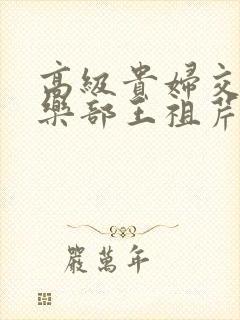 高級貴婦交
樂部王祖芹
嚴萬年